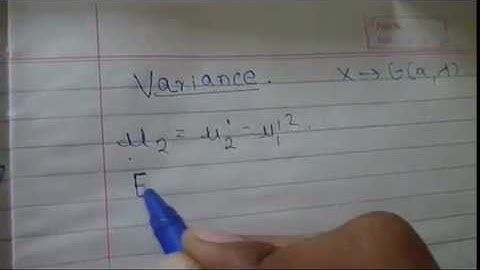 Variance. X → G(a, λ)
μ₂ = μ₂' - μ₁'²
E